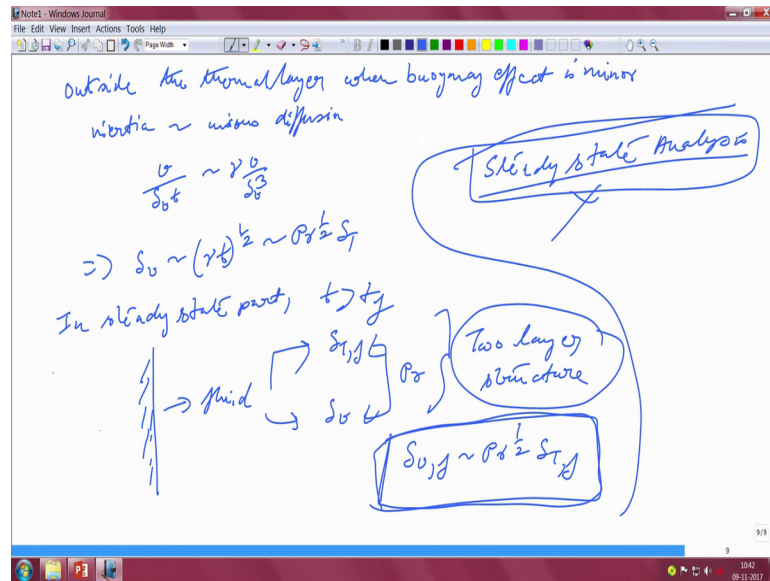 Note1 - Windows Journal
File Edit View Insert Actions Tools Help
Page Width
B I
outside the thermal layer when buoyancy effect is minor
inertia ~ viscous diffusion
v/δᵥt ~ γ v/δᵥ³
Steady state Analysis
⇒ δᵥ ~ (γt)^½ ~ Pr^½ δ_T
In steady state part, t > t_f
→ fluid
δ_T,f
δᵥ
Pr
Two layer
structure
δᵥ,f ~ Pr^½ δ_T,f
9/9
9
10:42
09-11-2017